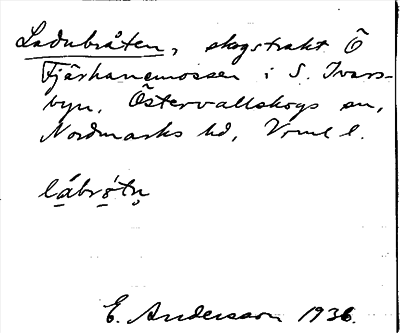 Ladubråten, skogstrakt Ö
Fjärhanemossen i S. Ivars-
byn, Östervallskogs sn,
Nordmarks hd, Vrml l.
lábrǿtn̥
E. Andersson 1936.